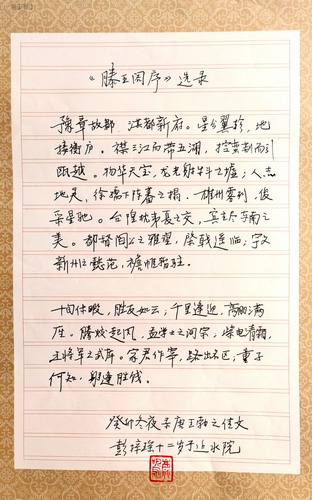 《滕王阁序》选录
豫章故郡 洪都新府。星分翼轸，地
接衡庐。襟三江而带五湖，控蛮荆而引
瓯越。物华天宝，龙光射牛斗之墟；人杰
地灵，徐孺下陈蕃之榻。雄州雾列，俊
采星驰。台隍枕夷夏之交，宾主尽东南之
美。都督阎公之雅望，棨戟遥临；宇文
新州之懿范，襜帷暂驻。
十旬休暇，胜友如云；千里逢迎，高朋满
座。腾蛟起凤，孟学士之词宗；紫电青霜，
王将军之武库。家君作宰，路出名区；童子
何知，躬逢胜饯。
癸卯冬夜录唐王勃之佳文
彭梓瑶十二岁于近水院